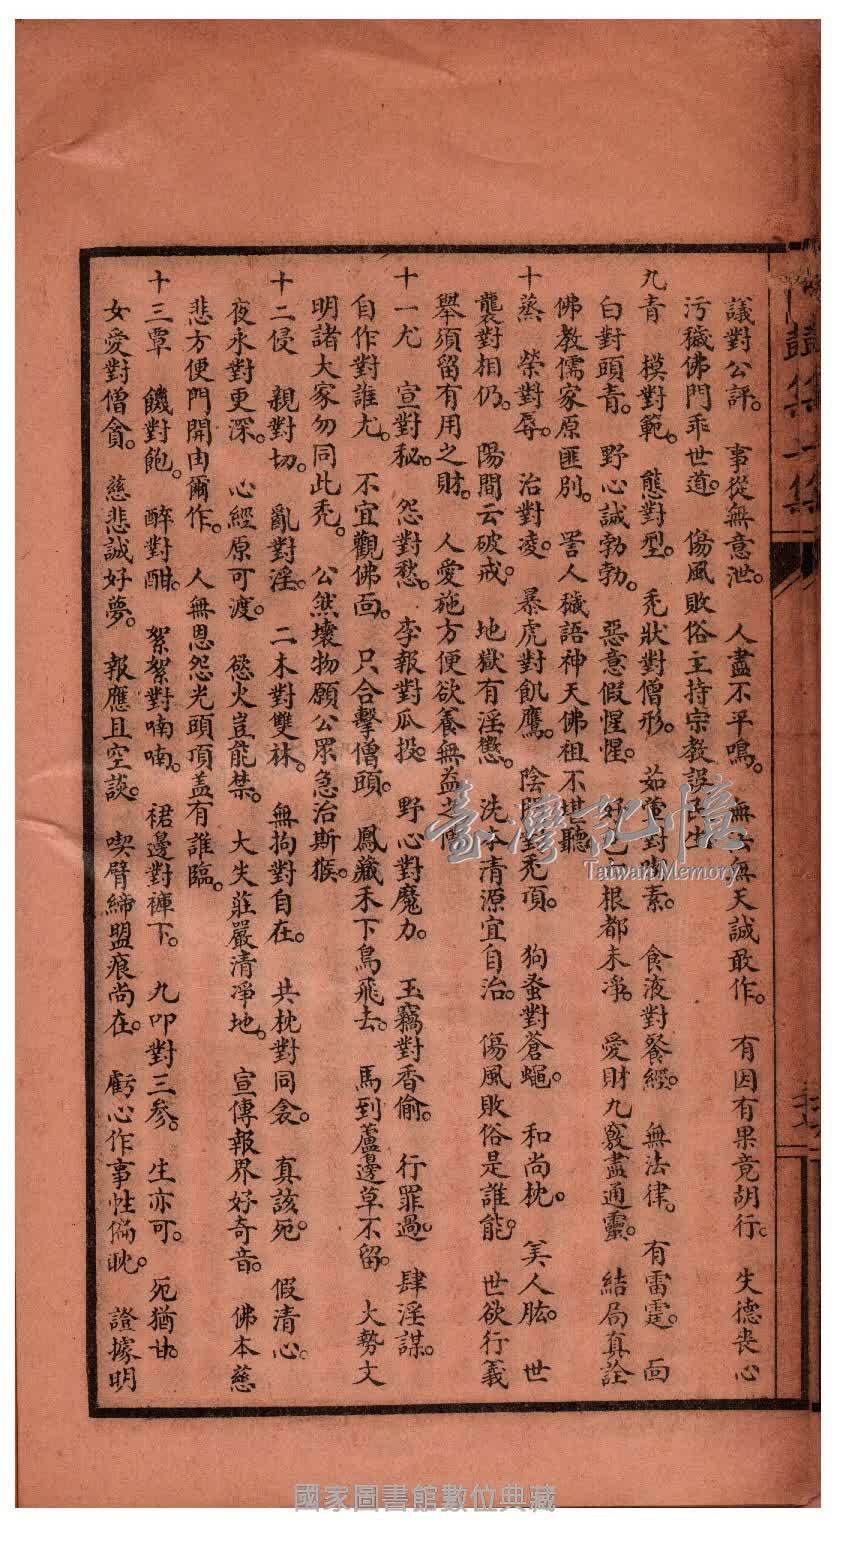 鼓集一集
議對公評。 事從無意泄。 人盡不平鳴。 無法無天誠敢作。 有因有果竟胡行。 失德喪心
污穢佛門乖世道。 傷風敗俗主持宗教誤民生。
九青 模對範。 態對型。 禿狀對僧形。 茹葷對素。 食液對餐經。 無法律。 有雷霆。 面
白對頭青。 野心誠勃勃。 惡意假惺惺。 好色六根都未凈。 愛財九竅盡通靈。 結局真詮
佛教儒家原匪別。 詈人穢語神天佛祖不堪聽
十蒸 榮對辱。 治對凌。 暴虎對飢鷹。 陰對禿項。 狗蚤對蒼蠅。 和尚枕。 美人肱。 世
襲對相仍。 陽間云破戒。 地獄有淫懲。 洗本清源宜自治。 傷風敗俗是誰能。 世欲行義
舉須留有用之財。 人愛施方便欲養無益之僧
十一尤 宣對秘。 怨對愁。 李報對瓜投。 野心對魔力。 玉竊對香偷。 行罪過。 肆淫謀。
自作對誰尤。 不宜觀佛面。 只合擊僧頭。 鳳藏禾下鳥飛去。 馬到蘆邊草不留。 大勢文
明諸大家勿同此禿。 公然壞物願公眾急治斯猴。
十二侵 親對切。 亂對淫。 二木對雙林。 無拘對自在。 共枕對同衾。 真該死。 假清心。
夜永對更深。 心經原可渡。 慾火豈能禁。 大失莊嚴清凈地。 宣傳報界好奇音。 佛本慈
悲方便門開由爾作。 人無恩怨光頭項蓋有誰臨。
十三覃 饑對飽。 醉對酣。 絮絮對喃喃。 裙邊對褲下。 九叩對三參。 生亦可。 死猶甘。
女愛對僧貪。 慈悲誠好夢。 報應且空談。 喫臂締盟痕尚在。 虧心作事性偏眈。 證據明
臺灣記憶
Taiwan Memory
國家圖書館數位典藏